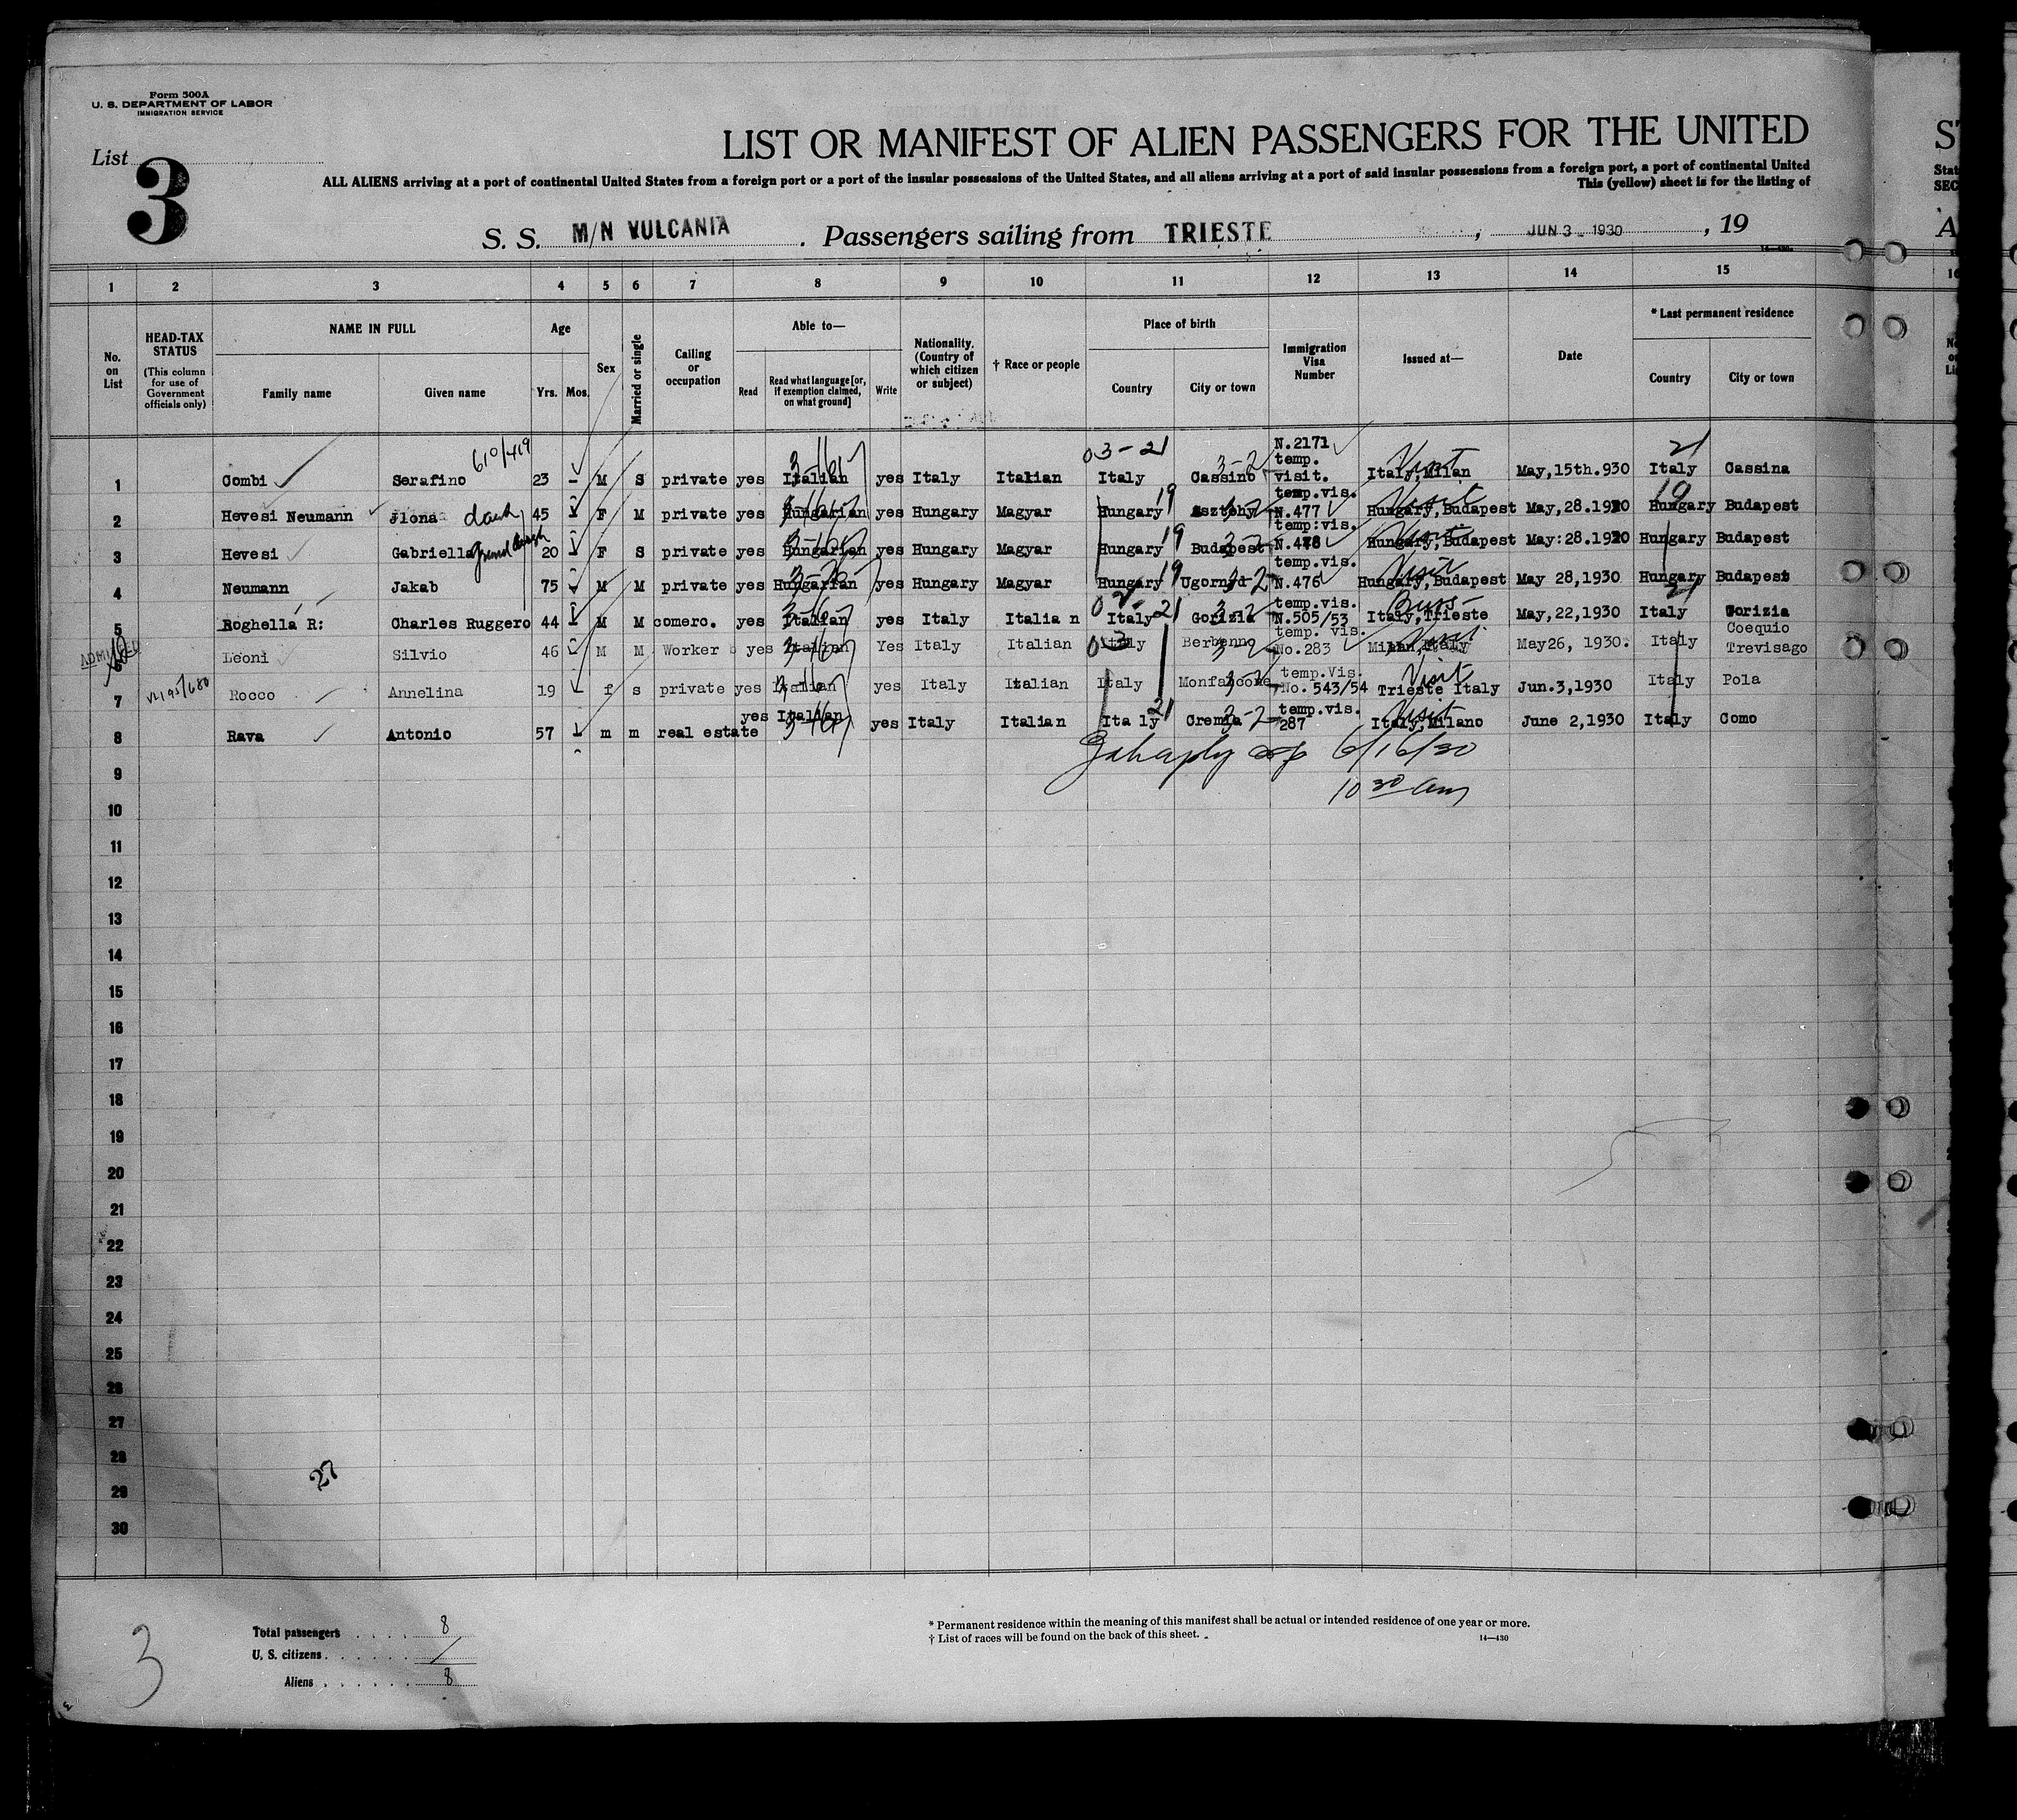 Form 500A
U. S. DEPARTMENT OF LABOR
IMMIGRATION SERVICE
List
3
LIST OR MANIFEST OF ALIEN PASSENGERS FOR THE UNITED
ALL ALIENS arriving at a port of continental United States from a foreign port or a port of the insular possessions of the United States, and all aliens arriving at a port of said insular possessions from a foreign port, a port of continental United
This (yellow) sheet is for the listing of
S. S. M/N VULCANIA . Passengers sailing from TRIESTE , JUN 3 - 1930 , 19
1 2 3 4 5 6 7 8 9 10 11 12 13 14 15
No. on List
HEAD-TAX STATUS (This column for use of Government officials only)
NAME IN FULL
Family name Given name
Age
Yrs. Mos.
Sex
Married or single
Calling or occupation
Able to—
Read Read what language [or, if exemption claimed, on what ground] Write
Nationality. (Country of which citizen or subject)
† Race or people
Place of birth
Country City or town
Immigration Visa Number
Issued at—
Date
* Last permanent residence
Country City or town
610/419 03-21 21
1 Combi Serafino 23 - M S private yes Italian yes Italy Italian Italy Cassino N.2171 temp. visit. Italy,Milan Visit May,15th.930 Italy Cassina
2 Hevesi Neumann Jlona 45 F M private yes Hungarian yes Hungary Magyar Hungary 19 temp.vis. N.477 Hungary,Budapest Visit May,28.1930 Hungary 19 Budapest
3 Hevesi Gabriella 20 F S private yes Hungarian yes Hungary Magyar Hungary 19 Budapest temp:vis. N.478 Hungary,Budapest May:28.1930 Hungary Budapest
4 Neumann Jakab 75 M M private yes Hungarian yes Hungary Magyar Hungary 19 temp.vis. N.476 Hungary,Budapest Visit May 28,1930 Hungary Budapest
5 Roghella R: Charles Ruggero 44 M M comerc. yes Italian yes Italy Italia n Italy 21 Gorizia temp.vis. N.505/53 Italy,Trieste May,22,1930 Italy 21 Gorizia
ADMITTED
6 Leoni Silvio 46 M M Worker yes Italian Yes Italy Italian Italy Berbenno temp. vis. No.283 Milan,Italy May26, 1930. Italy Coequio Trevisago
7 Rocco Annelina 19 f s private yes Italian yes Italy Italian Italy Monfalcone temp.Vis. No. 543/54 Trieste Italy Visit Jun.3,1930 Italy Pola
8 Rava Antonio 57 m m real estate yes Italian yes Italy Italian Ita ly 21 Cremia temp.vis. 287 Italy,Milano Visit June 2,1930 Italy Como
9 6/16/30
10 10 30 am
11
12
13
14
15
16
17
18
19
20
21
22
23
24
25
26
27
28
29
30
27
Total passengers . . . . 8
U. S. citizens . . . . . . /
Aliens . . . . . . 8
3
* Permanent residence within the meaning of this manifest shall be actual or intended residence of one year or more.
† List of races will be found on the back of this sheet.
14—430